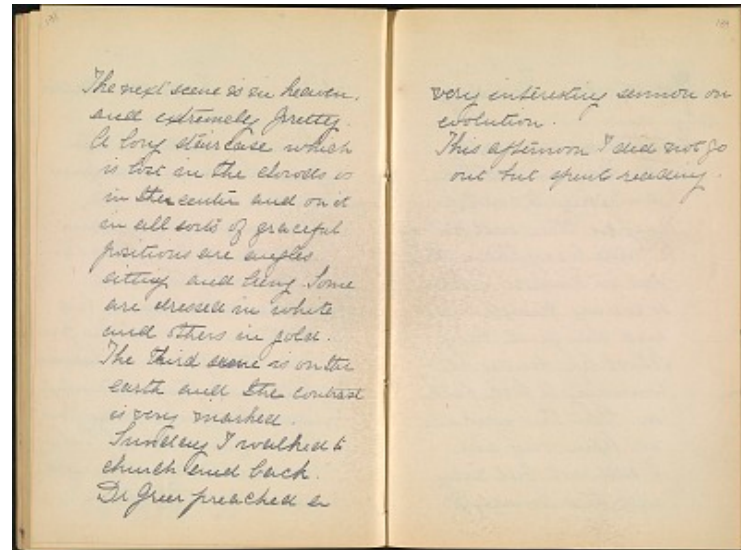 188
The next scene is in heaven,
and extremely pretty.
A long staircase which
is lost in the clowds is
in the center and on it
in all sorts of graceful
positions are angles
sitting and lieing. Some
are dressed in white
and others in gold.
The third scene is on the
earth and the contrast
is very marked.
Sunday I walked to
church and back.
Dr Greer preached a
189
very interesting sermon on
evolution.
This afternoon I did not go
out but spent reading.